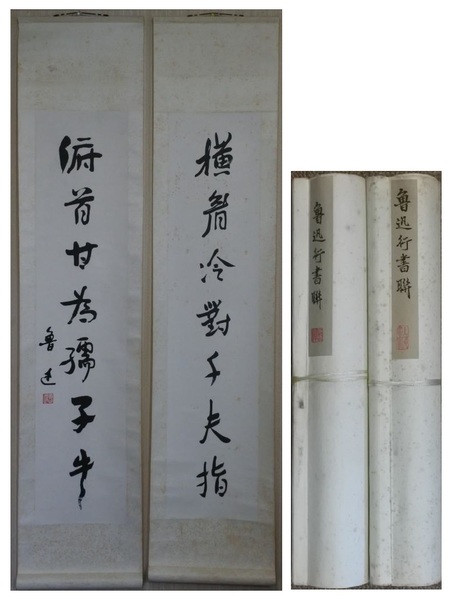 橫眉冷對千夫指
俯首甘為孺子牛
魯迅
魯迅行書聯
魯迅行書聯